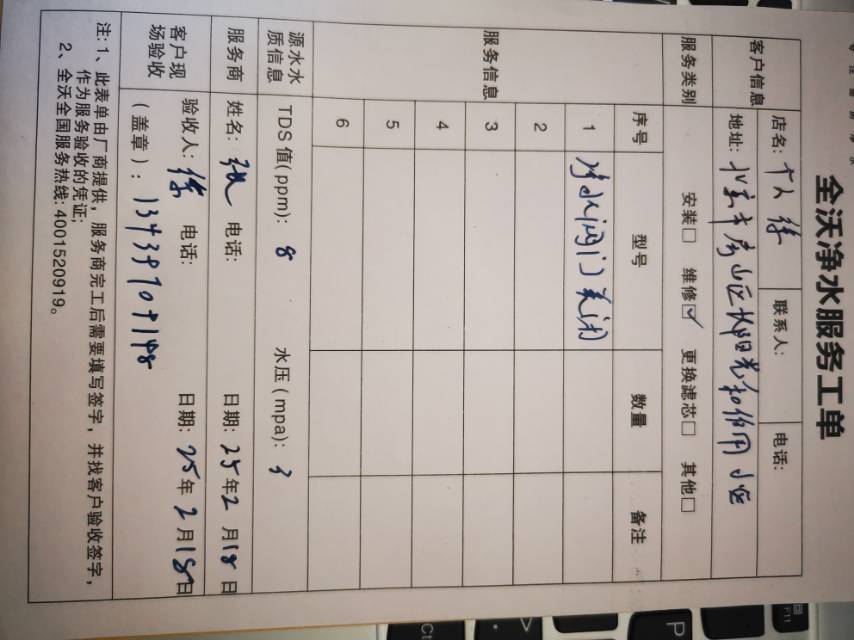 全沃净水服务工单
客户信息
店名: 个人 徐 联系人: 电话:
地址: 北京市房山区长阳光和作用小区
服务类别 安装□ 维修☑ 更换滤芯□ 其他□
服务信息
序号 型号 数量 备注
1 净水阀门关闭
2
3
4
5
6
源水水质信息 TDS 值(ppm): 8 水压(mpa): 3
服务商 姓名: 电话: 日期: 25年2月18日
客户现场验收 验收人: 徐 电话: 日期: 25年2月18日
(盖章): 13439709148
注: 1、此表单由厂商提供, 服务商完工后需要填写签字, 并找客户验收签字,
作为服务验收的凭证;
2、全沃全国服务热线: 4001520919。
Ctrl
>
P
F11